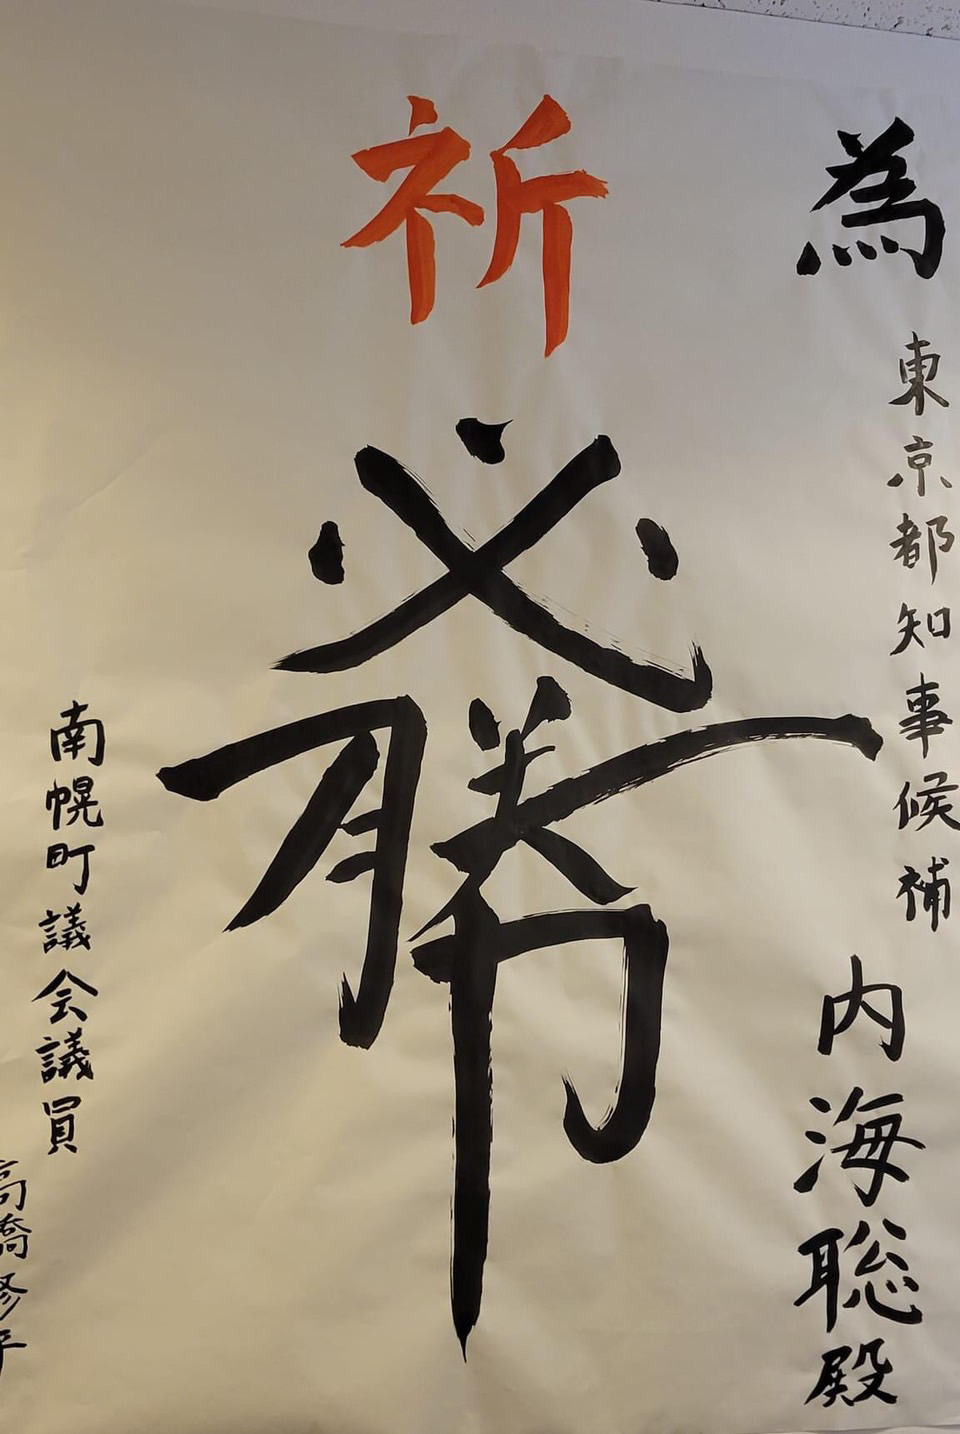 為
東京都知事候補
内海聡殿
祈
必勝
南幌町議会議員
高橋修平